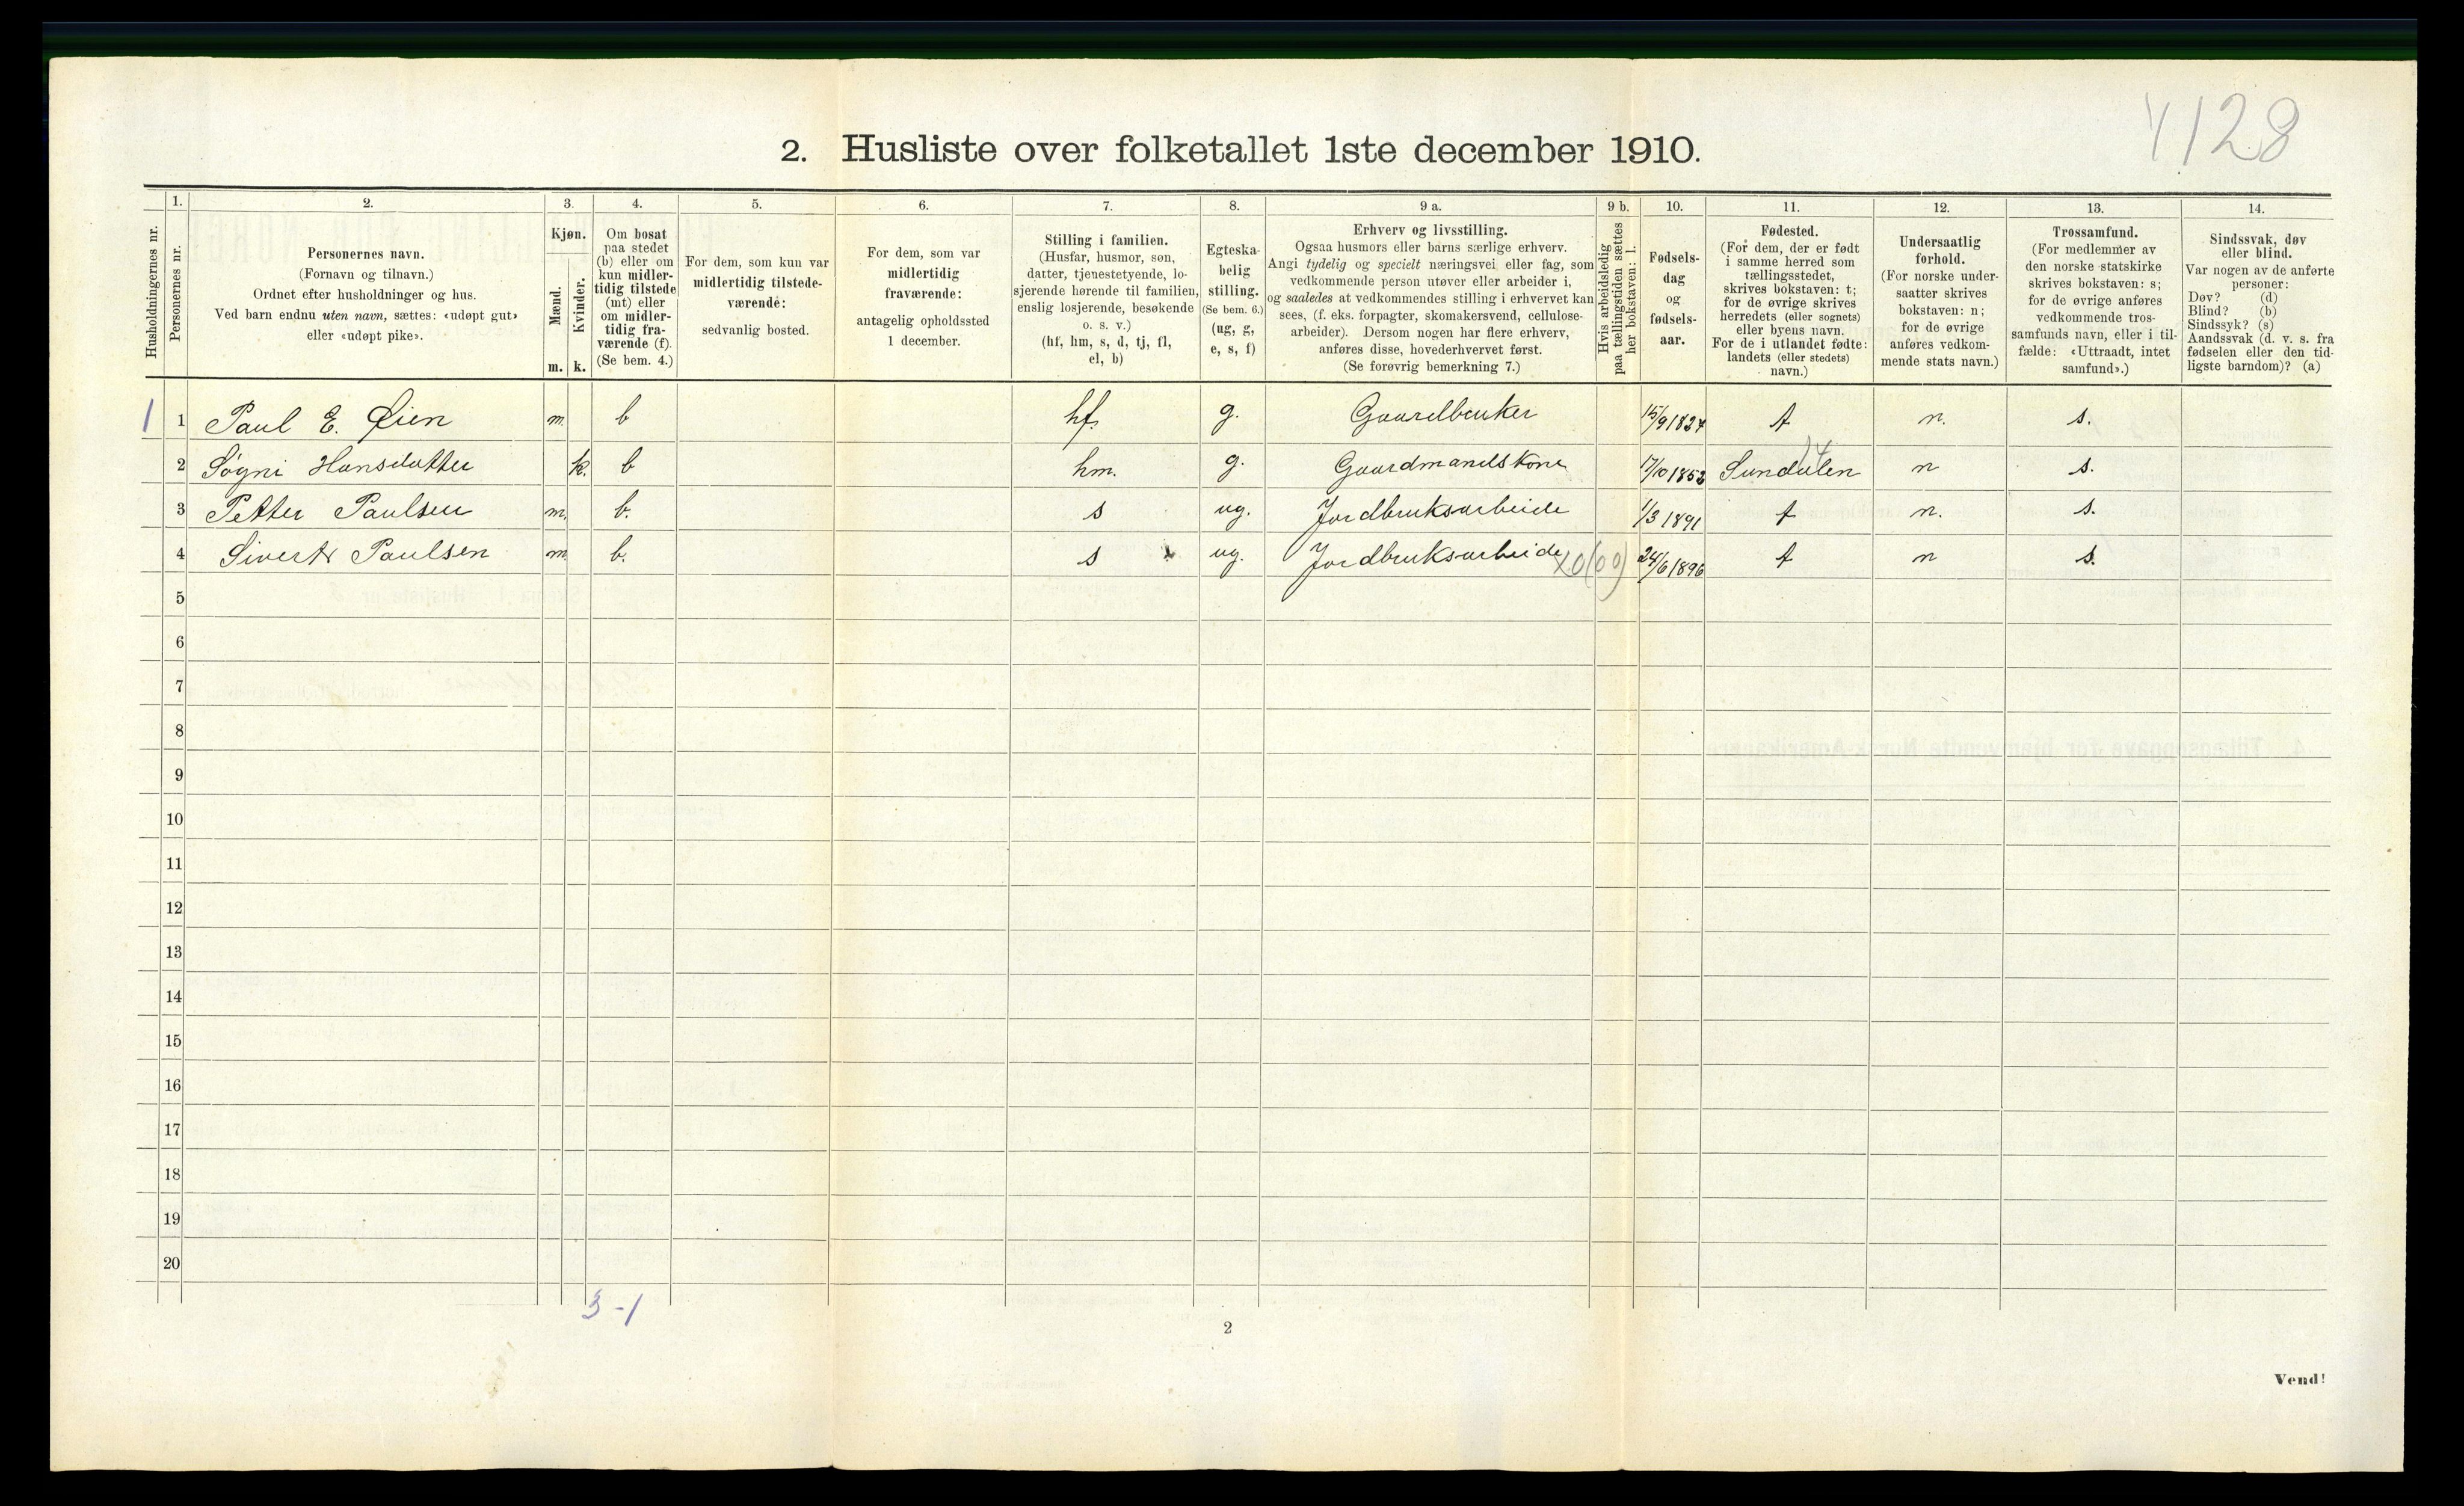 4128
2. Husliste over folketallet 1ste december 1910.
Husholdningernes nr.
1.
Personernes nr.
2.
Personernes navn.
(Fornavn og tilnavn.)
Ordnet efter husholdninger og hus.
Ved barn endnu uten navn, sættes: «udøpt gut»
eller «udøpt pike».
3.
Kjøn.
Mænd.
Kvinder.
m. k.
4.
Om bosat
paa stedet
(b) eller om
kun midler-
tidig tilstede
(mt) eller
om midler-
tidig fra-
værende (f).
(Se bem. 4.)
5.
For dem, som kun var
midlertidig tilstede-
værende:
sedvanlig bosted.
6.
For dem, som var
midlertidig
fraværende:
antagelig opholdssted
1 december.
7.
Stilling i familien.
(Husfar, husmor, søn,
datter, tjenestetyende, lo-
sjerende hørende til familien,
enslig losjerende, besøkende
o. s. v.)
(hf, hm, s, d, tj, fl,
el, b)
8.
Egteska-
belig
stilling.
(Se bem. 6.)
(ug, g,
e, s, f)
9 a.
Erhverv og livsstilling.
Ogsaa husmors eller barns særlige erhverv.
Angi tydelig og specielt næringsvei eller fag, som
vedkommende person utøver eller arbeider i,
og saaledes at vedkommendes stilling i erhvervet kan
sees, (f. eks. forpagter, skomakersvend, cellulose-
arbeider). Dersom nogen har flere erhverv,
anføres disse, hovederhvervet først.
(Se forøvrig bemerkning 7.)
9 b.
Hvis arbeidsledig
paa tællingstiden sættes
her bokstaven: l.
10.
Fødsels-
dag
og
fødsels-
aar.
11.
Fødested.
(For dem, der er født
i samme herred som
tællingsstedet,
skrives bokstaven: t;
for de øvrige skrives
herredets (eller sognets)
eller byens navn.
For de i utlandet fødte:
landets (eller stedets)
navn.)
12.
Undersaatlig
forhold.
(For norske under-
saatter skrives
bokstaven: n;
for de øvrige
anføres vedkom-
mende stats navn.)
13.
Trossamfund.
(For medlemmer av
den norske statskirke
skrives bokstaven: s;
for de øvrige anføres
vedkommende tros-
samfunds navn, eller i til-
fælde: «Uttraadt, intet
samfund».)
14.
Sindssvak, døv
eller blind.
Var nogen av de anførte
personer:
Døv? (d)
Blind? (b)
Sindssyk? (s)
Aandssvak (d. v. s. fra
fødselen eller den tid-
ligste barndom)? (a)
1 1 Paul E. Øien m. b hf. g. Gaardbruker 15/9 1827 t n. s.
2 Søgni Hansdatter k. b hm. g. Gaardmandskone 17/10 1852 Sundalen n s.
3 Petter Paulsen m. b. s ug. Jordbruksarbeide 1/3 1891 t n. s.
4 Sivert Paulsen m b. s ug. Jordbruksarbeide 24/6 1896 t n s.
5
6
7
8
9
10
11
12
13
14
15
16
17
18
19
20
3 - 1
2
Vend!